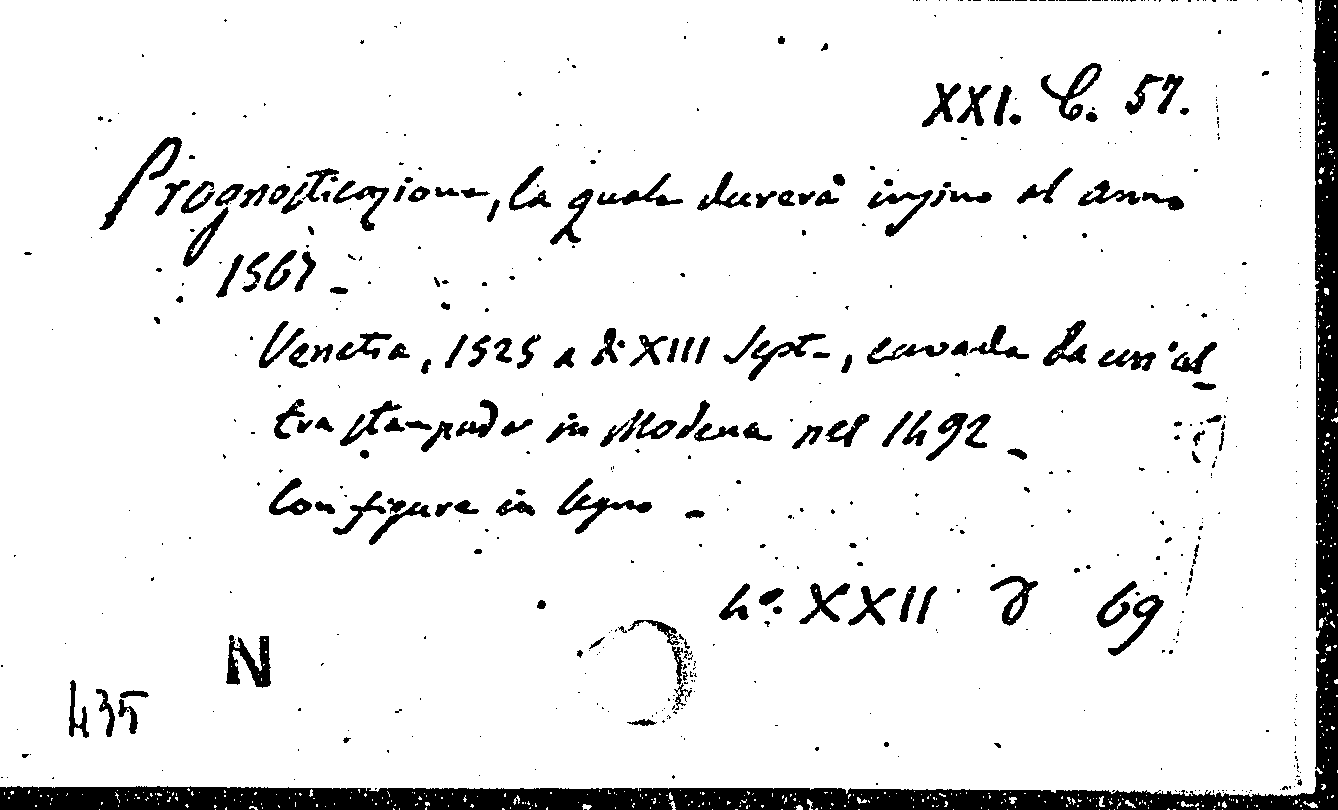 XXI. C. 57.
Prognosticazione, la quale durerà insino al anno
1567 -
Venetia, 1525 a di XIII Sept-, cavada da un'al-
tra stampada in Modena nel 1492 -
Con figure in legno -
4º. XXII D 69
N
435